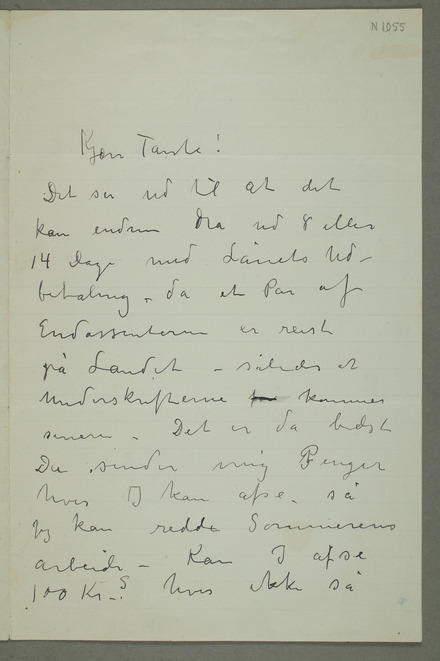 N 1055
Kjære Tante!
Det ser ud til at det
kan endnu dra ud 8 eller
14 Dage med Lånets Ud-
betaling – da et Par af
Endossenterne er reist
på Landet – således at
Underskrifterne kommer
senere – Det er da bedst
Du sender mig Penger
hvis I kan afse – så
jeg kan redde Sommerens
arbeide – Kan I afse
100 Kr –? hvis ikke så